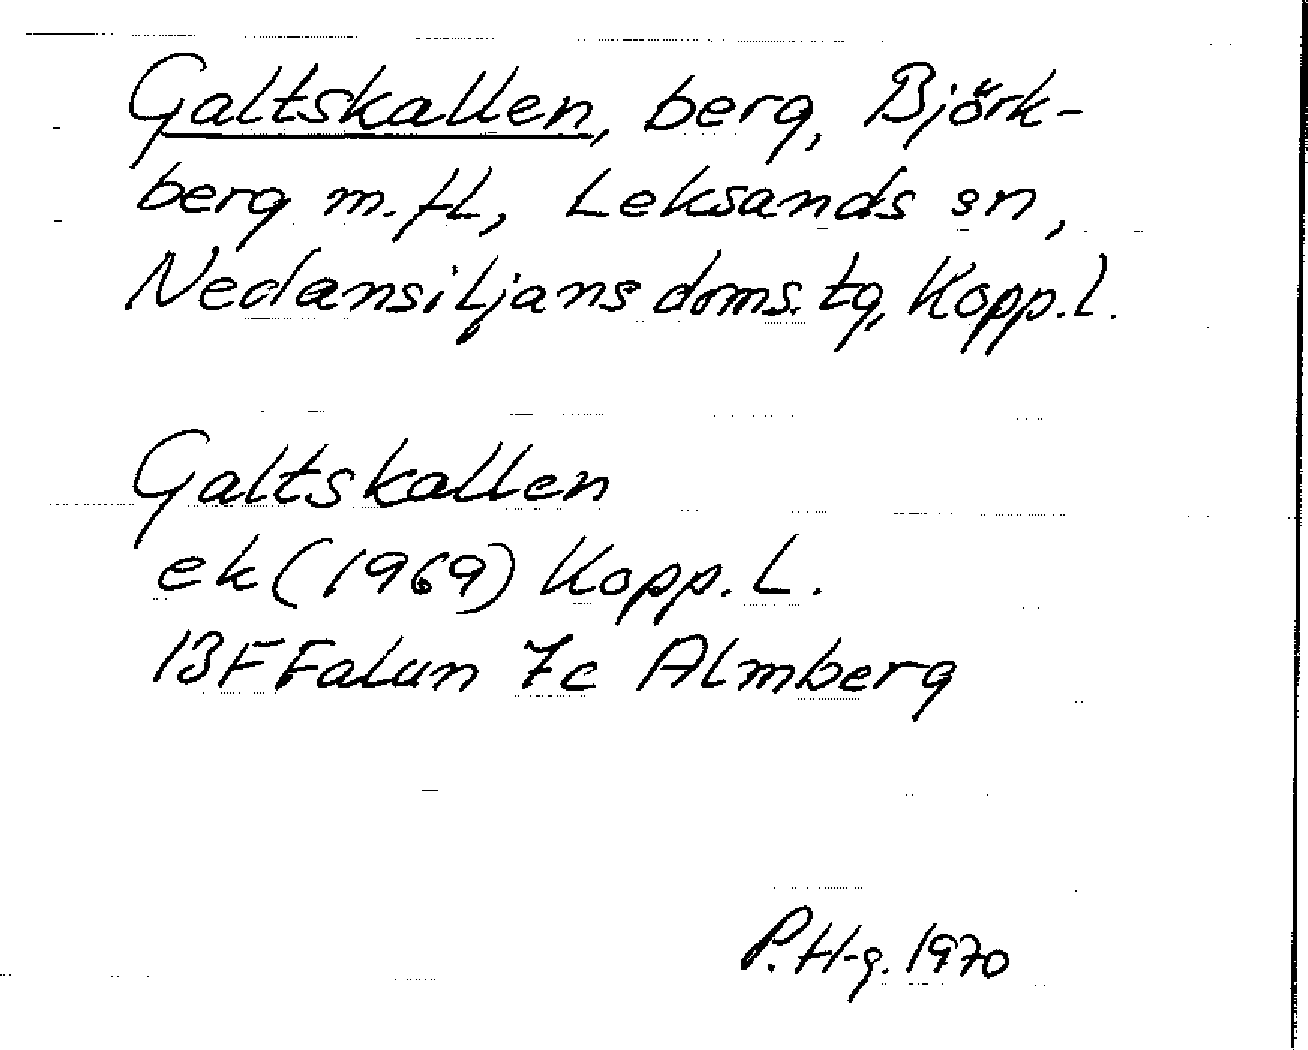 Galtskallen, berg, Björk-
berg m.fl., Leksands sn,
Nedansiljans doms. tg, Kopp. l.
Galtskallen
ek (1969) Kopp. L.
13F Falun 7c Almberg
P. H-g. 1970